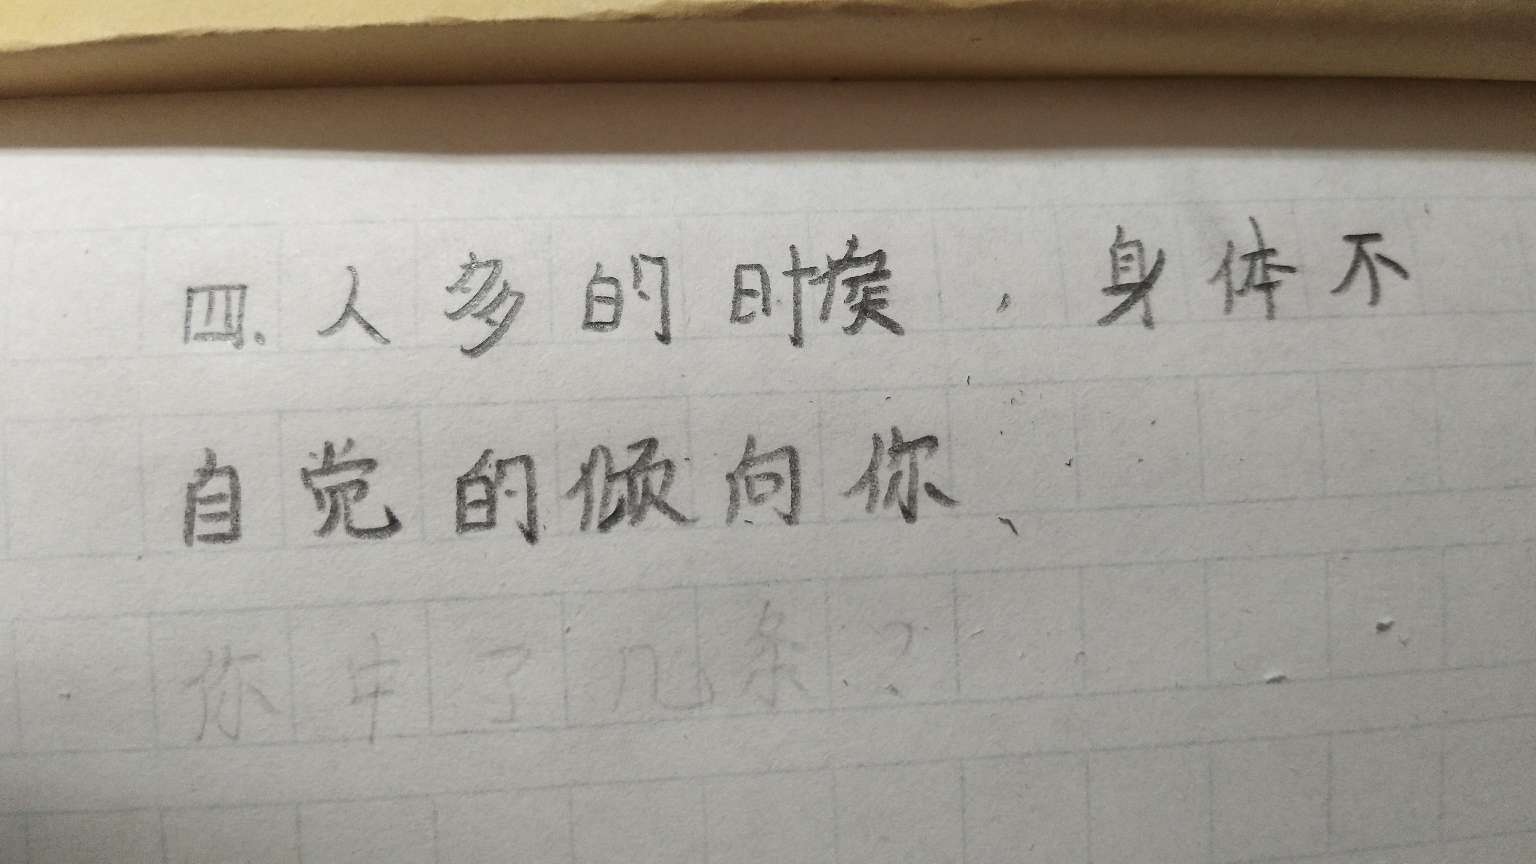 四.人多的时候，身体不
自觉的倾向你、
你中了几条？